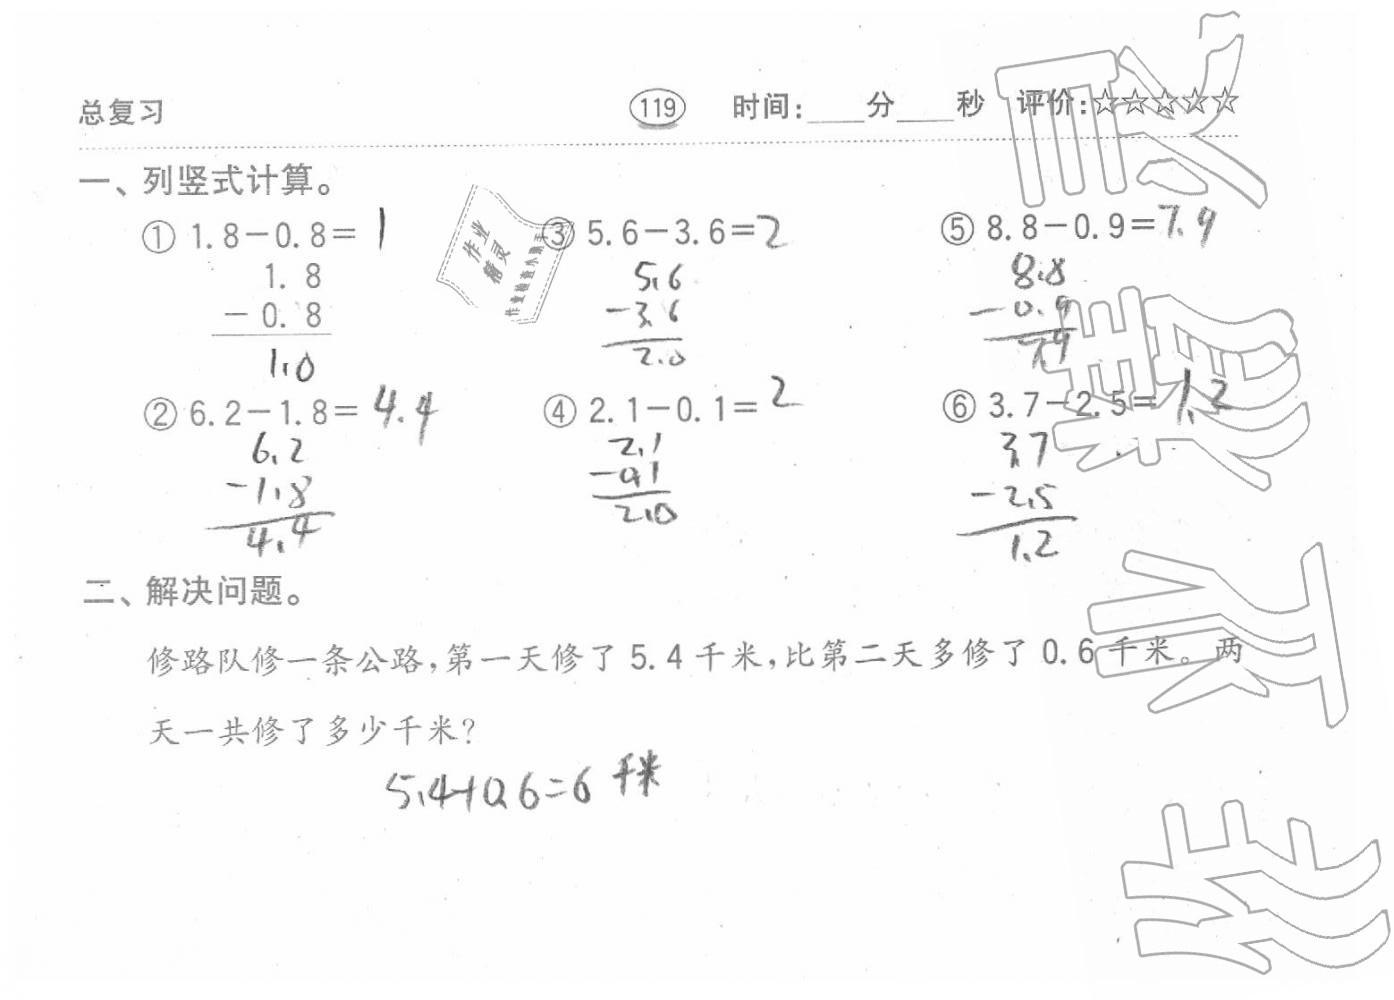 总复习 119 时间:____分____秒 评价:☆☆☆☆☆
一、列竖式计算。
① 1.8-0.8= 1 ③ 5.6-3.6=2 ⑤ 8.8-0.9=7.9
1.8 5.6 8.8
-0.8 -3.6 -0.9
1.0 2.0 7.9
② 6.2-1.8= 4.4 ④ 2.1-0.1= 2 ⑥ 3.7-2.5= 1.2
6.2 2.1 3.7
-1.8 -0.1 -2.5
4.4 2.0 1.2
二、解决问题。
修路队修一条公路,第一天修了 5.4 千米,比第二天多修了 0.6 千米。两
天一共修了多少千米?
5.4+0.6=6 千米
作业
精灵
作业检查小助手